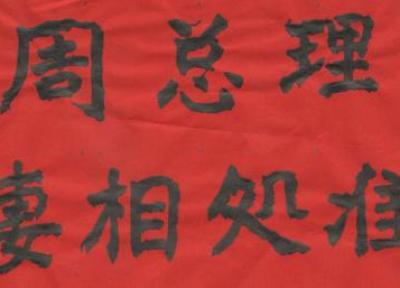 周总理
妻相处准